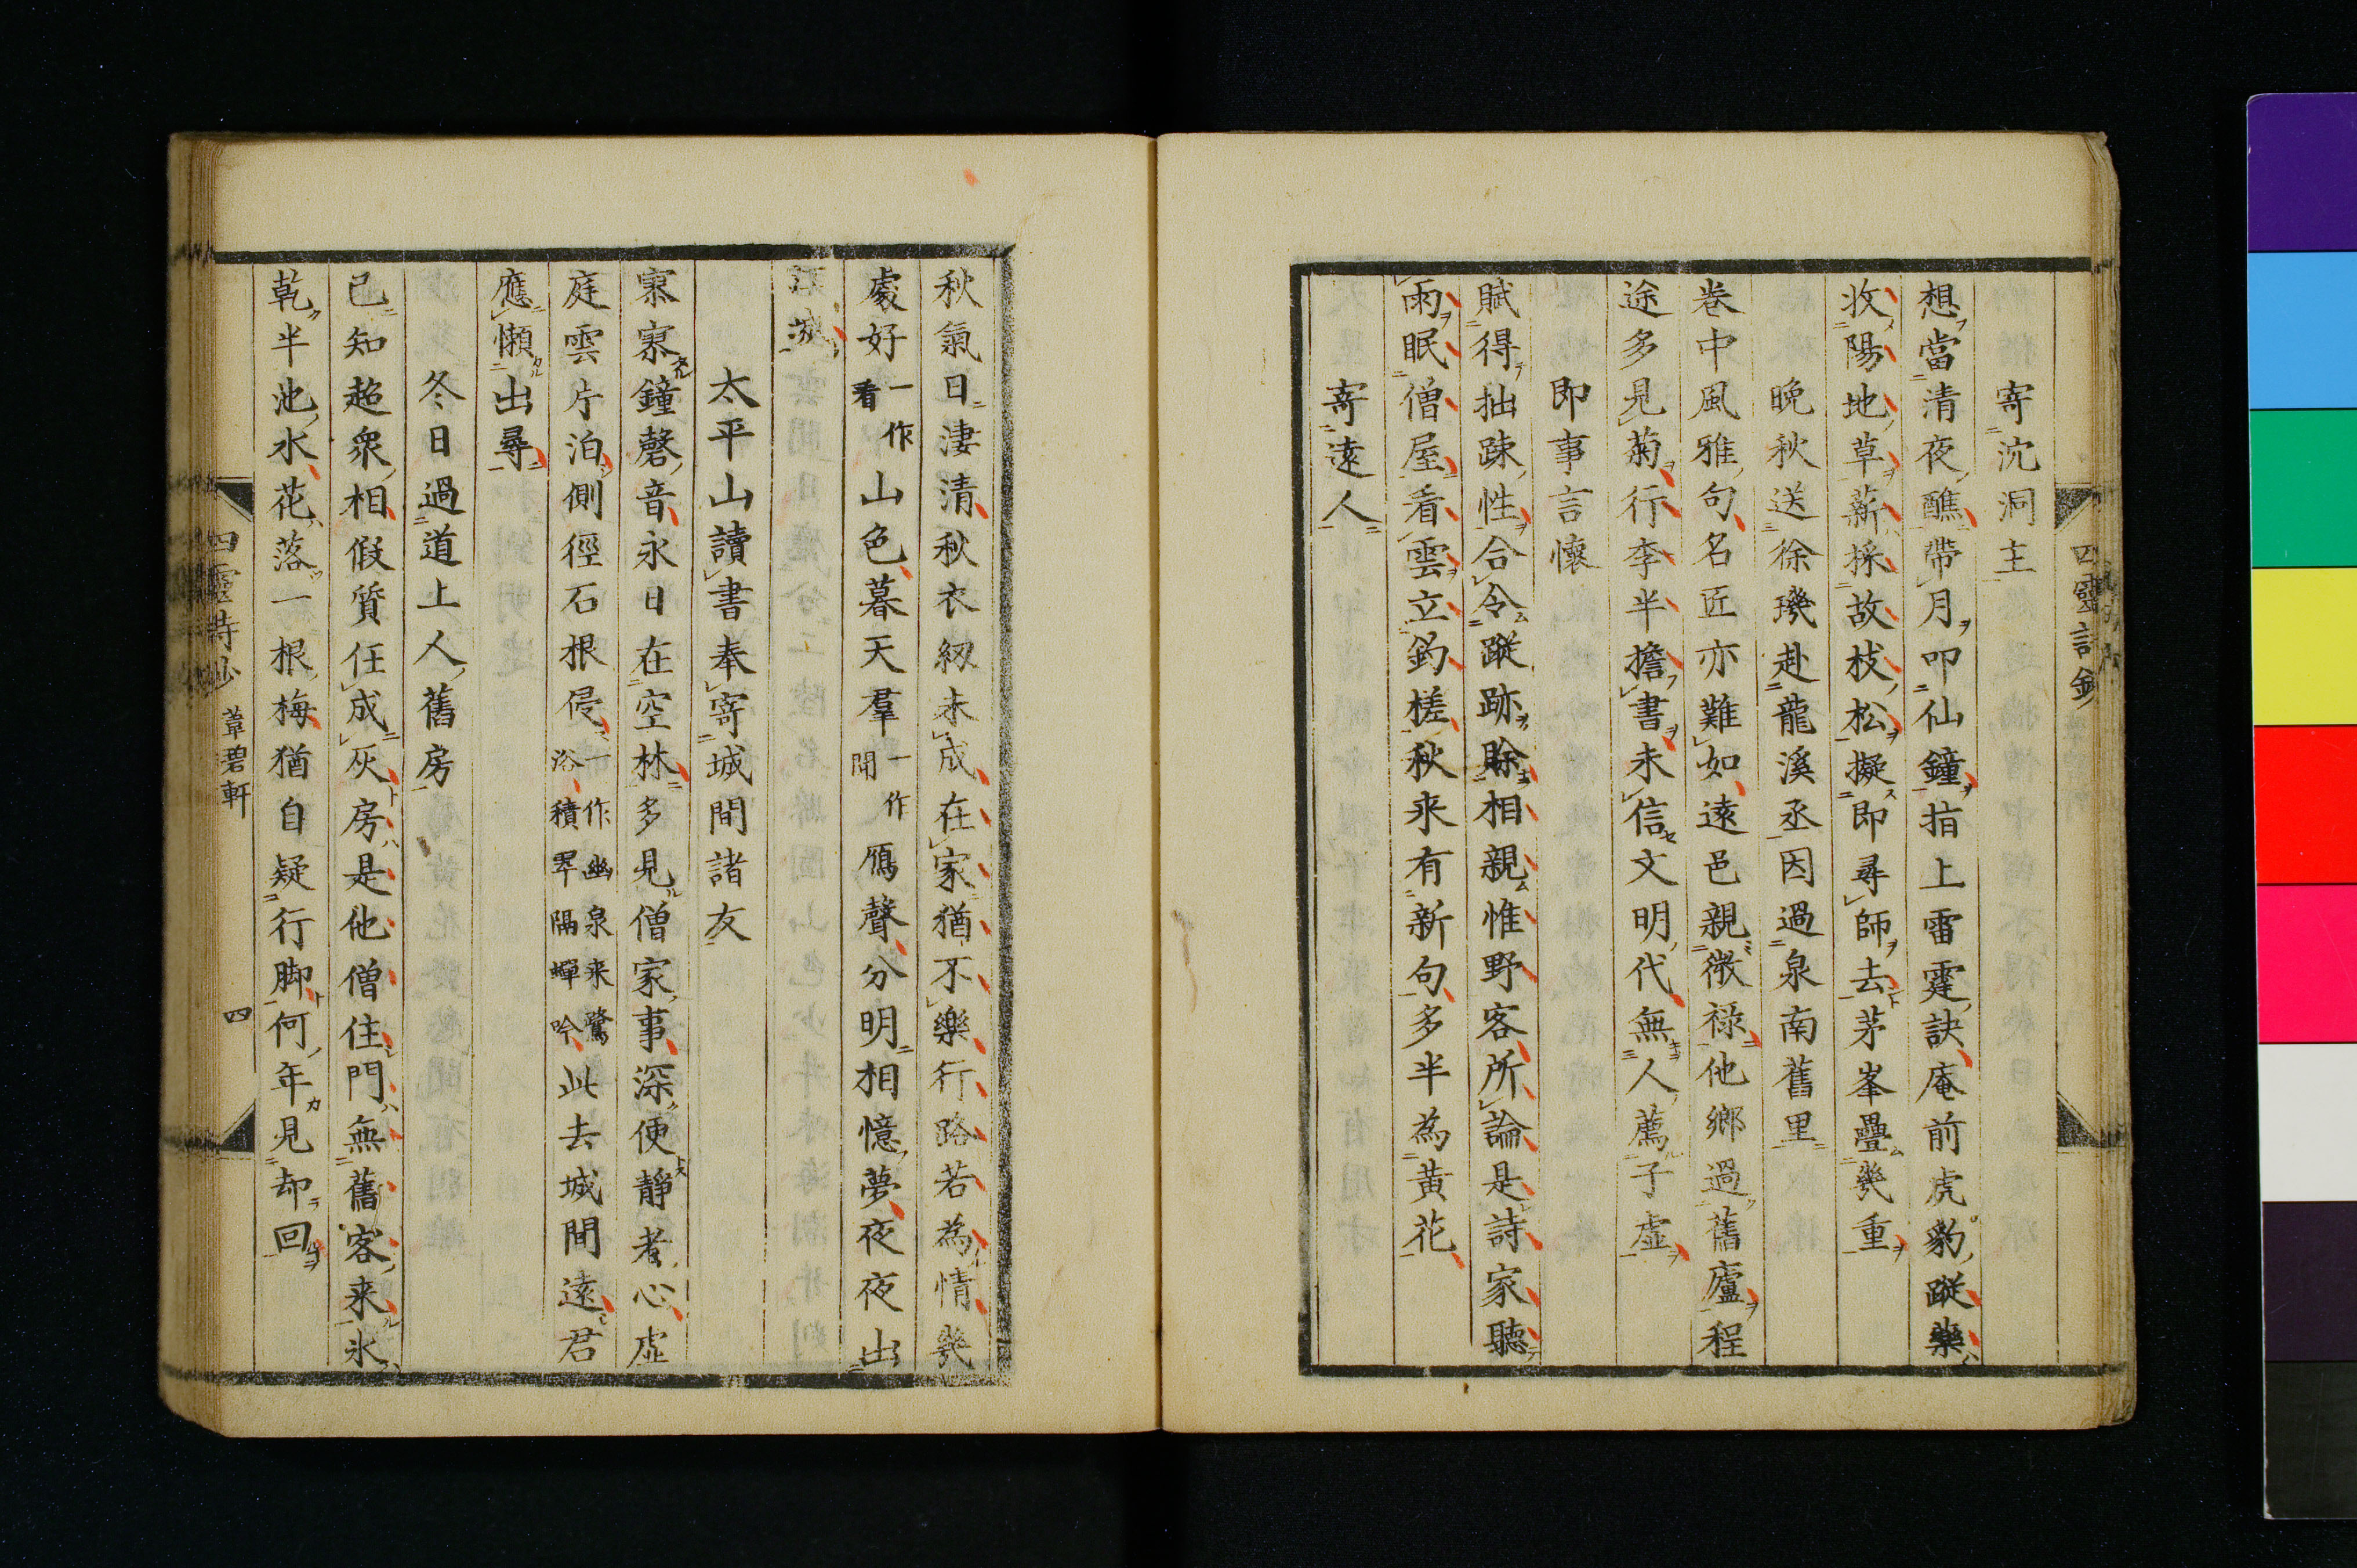 寄沈洞主
想當清夜醮帶月叩仙鐘指上雷霆訣庵前虎豹蹤藥
收陽地草薪採故枝松擬即尋師去茅峯疊幾重
晚秋送徐璣赴龍溪丞因過泉南舊里
卷中風雅句名匠亦難如遠邑親微祿他鄉過舊廬程
途多見菊行李半擔書未信文明代無人薦子虛
即事言懷
賦得拙踈性合令蹤跡賒相親惟野客所論是詩家聽
雨眠僧屋看雲立釣槎秋来有新句多半為黃花
寄遠人
秋氣日淒清秋衣紉未成在家猶不樂行路若為情幾
處好一作看山色暮天羣一作聞鴈聲分明相憶夢夜夜出
太平山讀書奉寄城間諸友
寂寂鐘磬音永日在空林多見僧家事深便靜者心虛
庭雲片泊側徑石根侵一作幽泉来鷺浴積翠隔蟬吟此去城間遠君
應懶出尋
冬日過道上人舊房
已知超衆相假質任成灰房是他僧住門無舊客来氷
乾半池水花落一根梅猶自疑行脚何年見却回
四靈詩鈔 葦碧軒 四